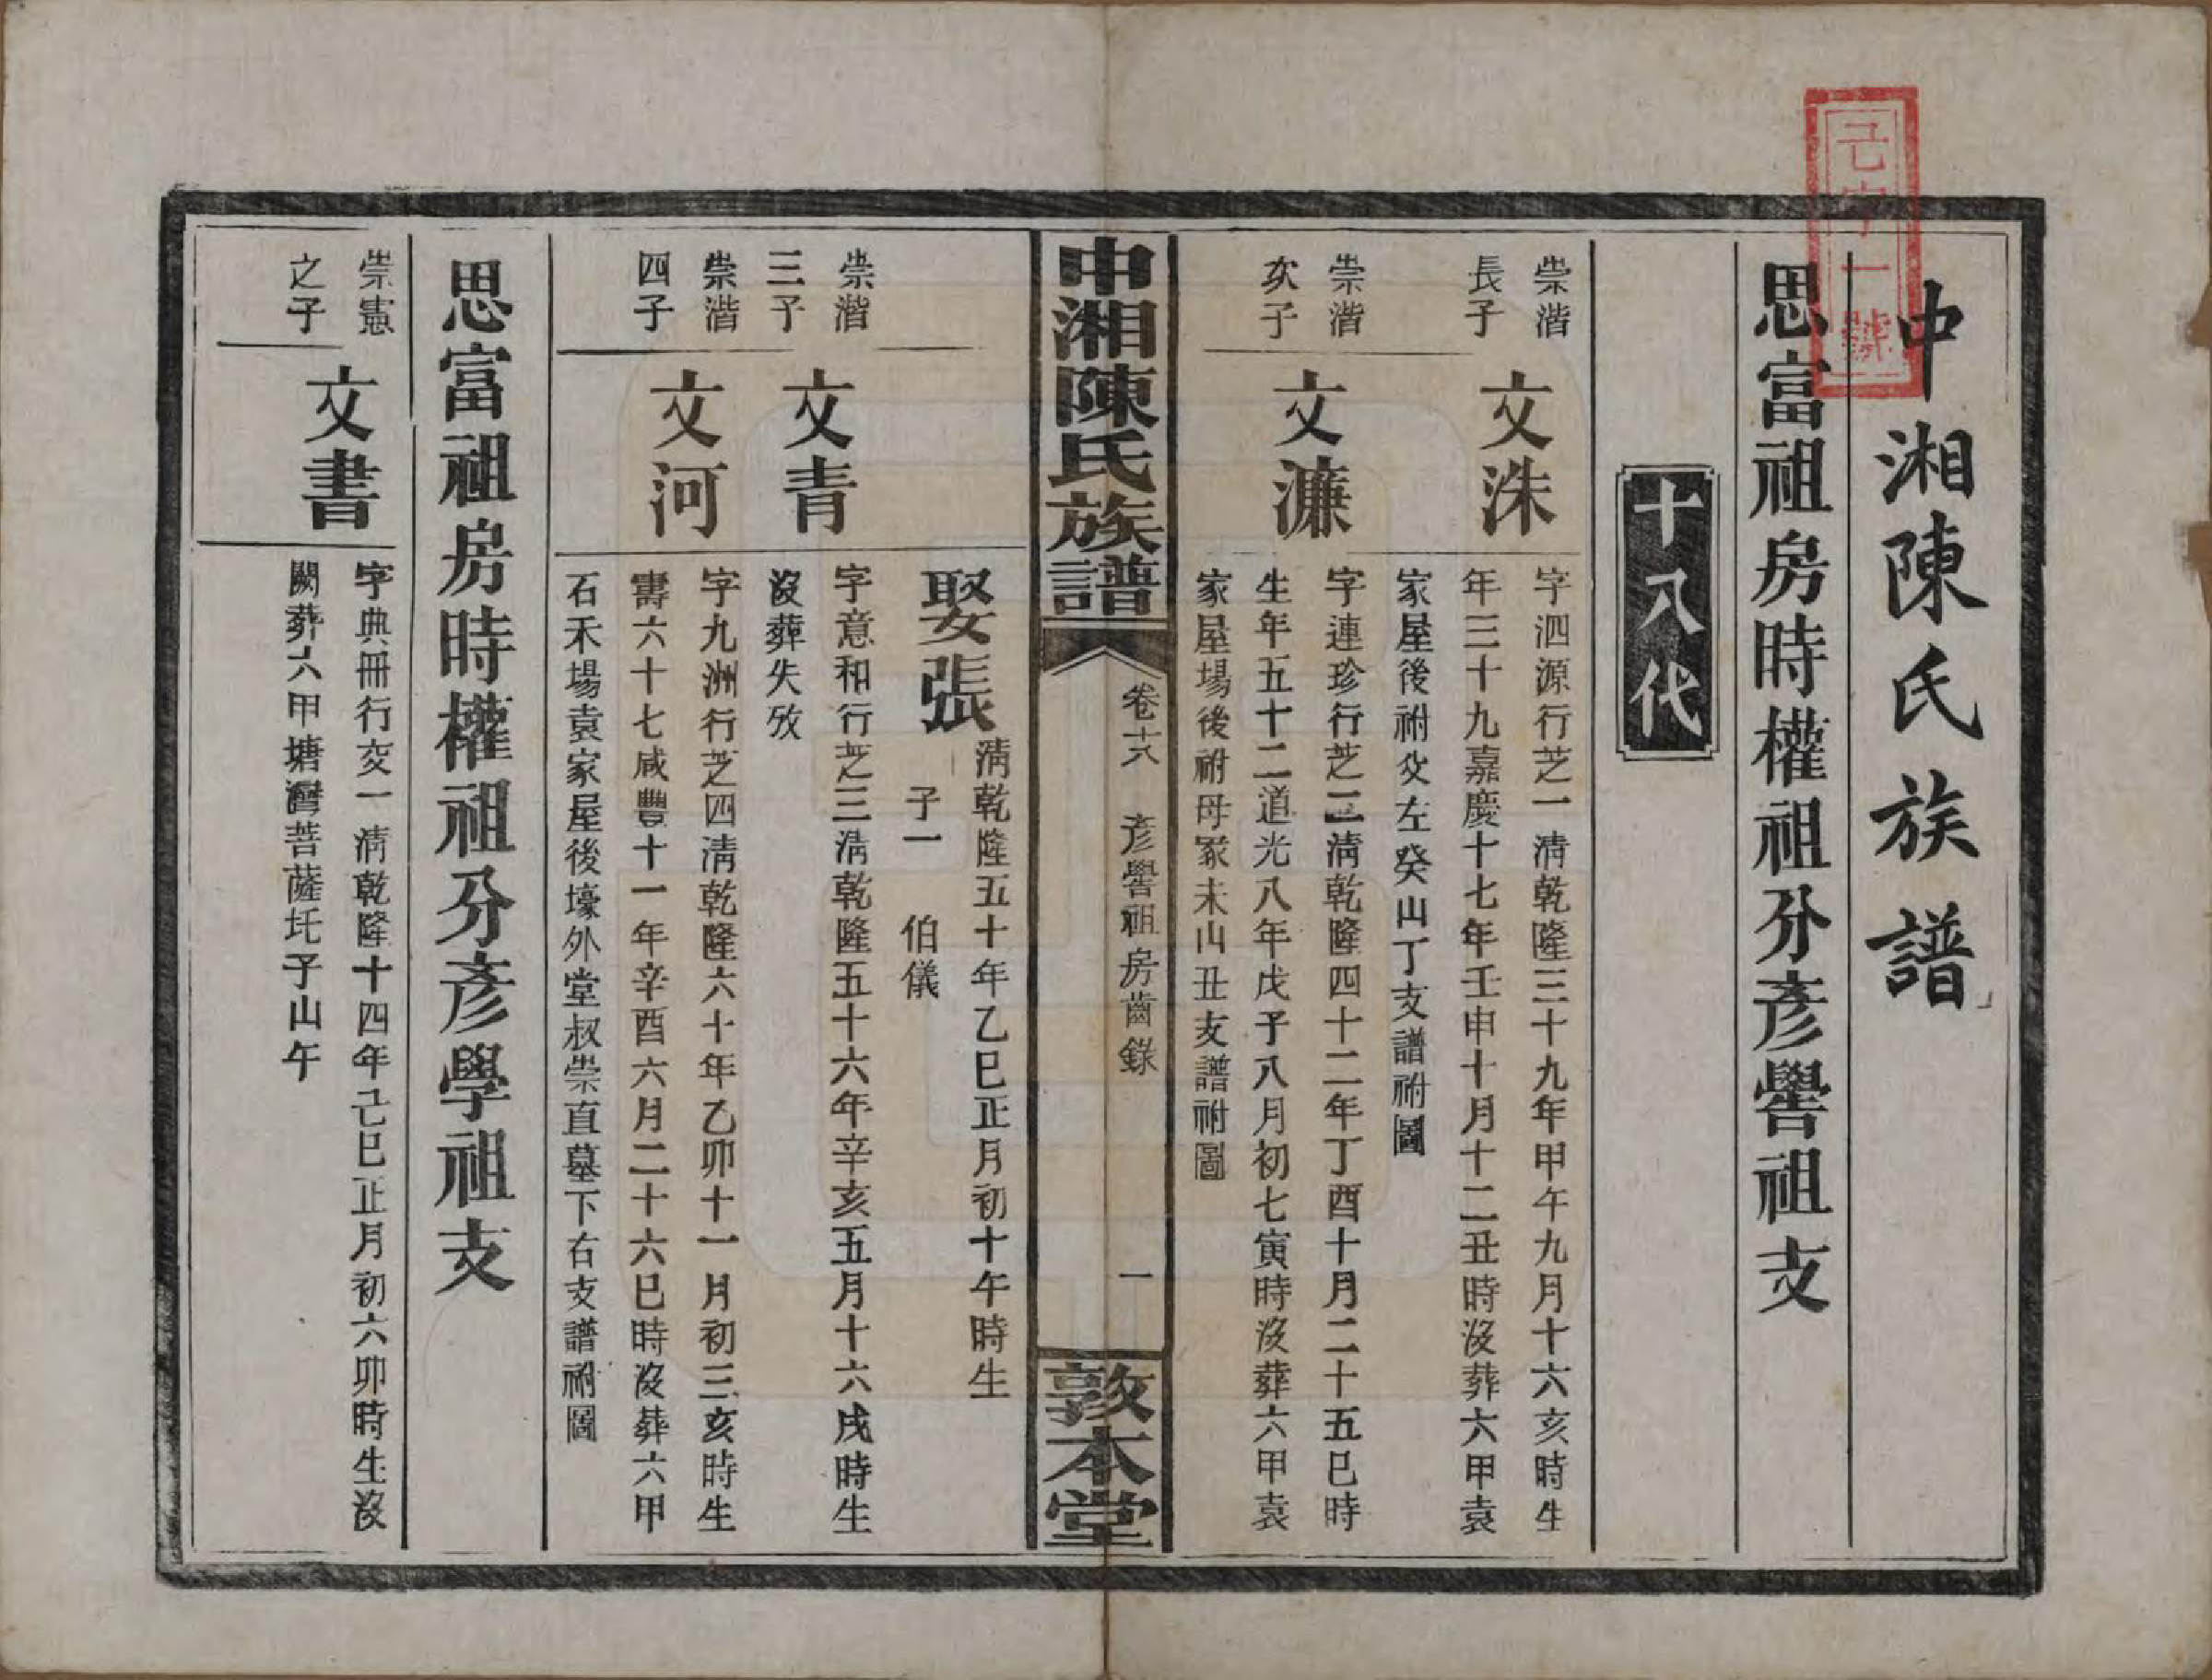 中湘陳氏族譜
思富祖房時權祖分彥譽祖支
十八代
崇湝
長子
文洙
字泗源行芝一清乾隆三十九年甲午九月十六亥時生
年三十九嘉慶十七年壬申十月十二丑時沒葬六甲袁
家屋後祔父左癸山丁支譜祔圖
崇湝
次子
文濂
字連珍行芝二清乾隆四十二年丁酉十月二十五巳時
生年五十二道光八年戊子八月初七寅時沒葬六甲袁
家屋場後祔母冢未山丑支譜祔圖
中湘陳氏族譜
卷十六 彥譽祖房齒錄 一
敦本堂
娶張
清乾隆五十年乙巳正月初十午時生
子一 伯儀
崇湝
三子
文青
字意和行芝三清乾隆五十六年辛亥五月十六戌時生
沒葬失攷
崇湝
四子
文河
字九洲行芝四清乾隆六十年乙卯十一月初三亥時生
壽六十七咸豐十一年辛酉六月二十六巳時沒葬六甲
石禾場袁家屋後壕外堂叔崇直墓下右支譜祔圖
思富祖房時權祖分彥學祖支
崇憲
之子
文書
字典冊行交一清乾隆十四年己巳正月初六卯時生沒
闕葬六甲塘灣菩薩坵子山午